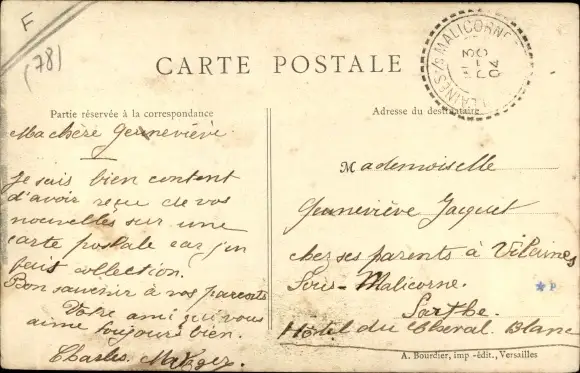 F
(78)
CARTE POSTALE
VILAINES-S-MALICORNE
3
DEC
04
Partie réservée à la correspondance
Adresse du destinataire
Ma chère Geneviève
Je suis bien content
d'avoir reçu de vos
nouvelles sur une
carte postale car j'en
fais collection.
Bon souvenir à vos parents
Votre ami qui vous
aime toujours bien.
Charles
Mademoiselle
Geneviève Jacquet
chez ses parents à Vilaines
Sous-Malicorne.
Sarthe.
Hôtel du Cheval Blanc
*P
A. Bourdier, imp -édit., Versailles